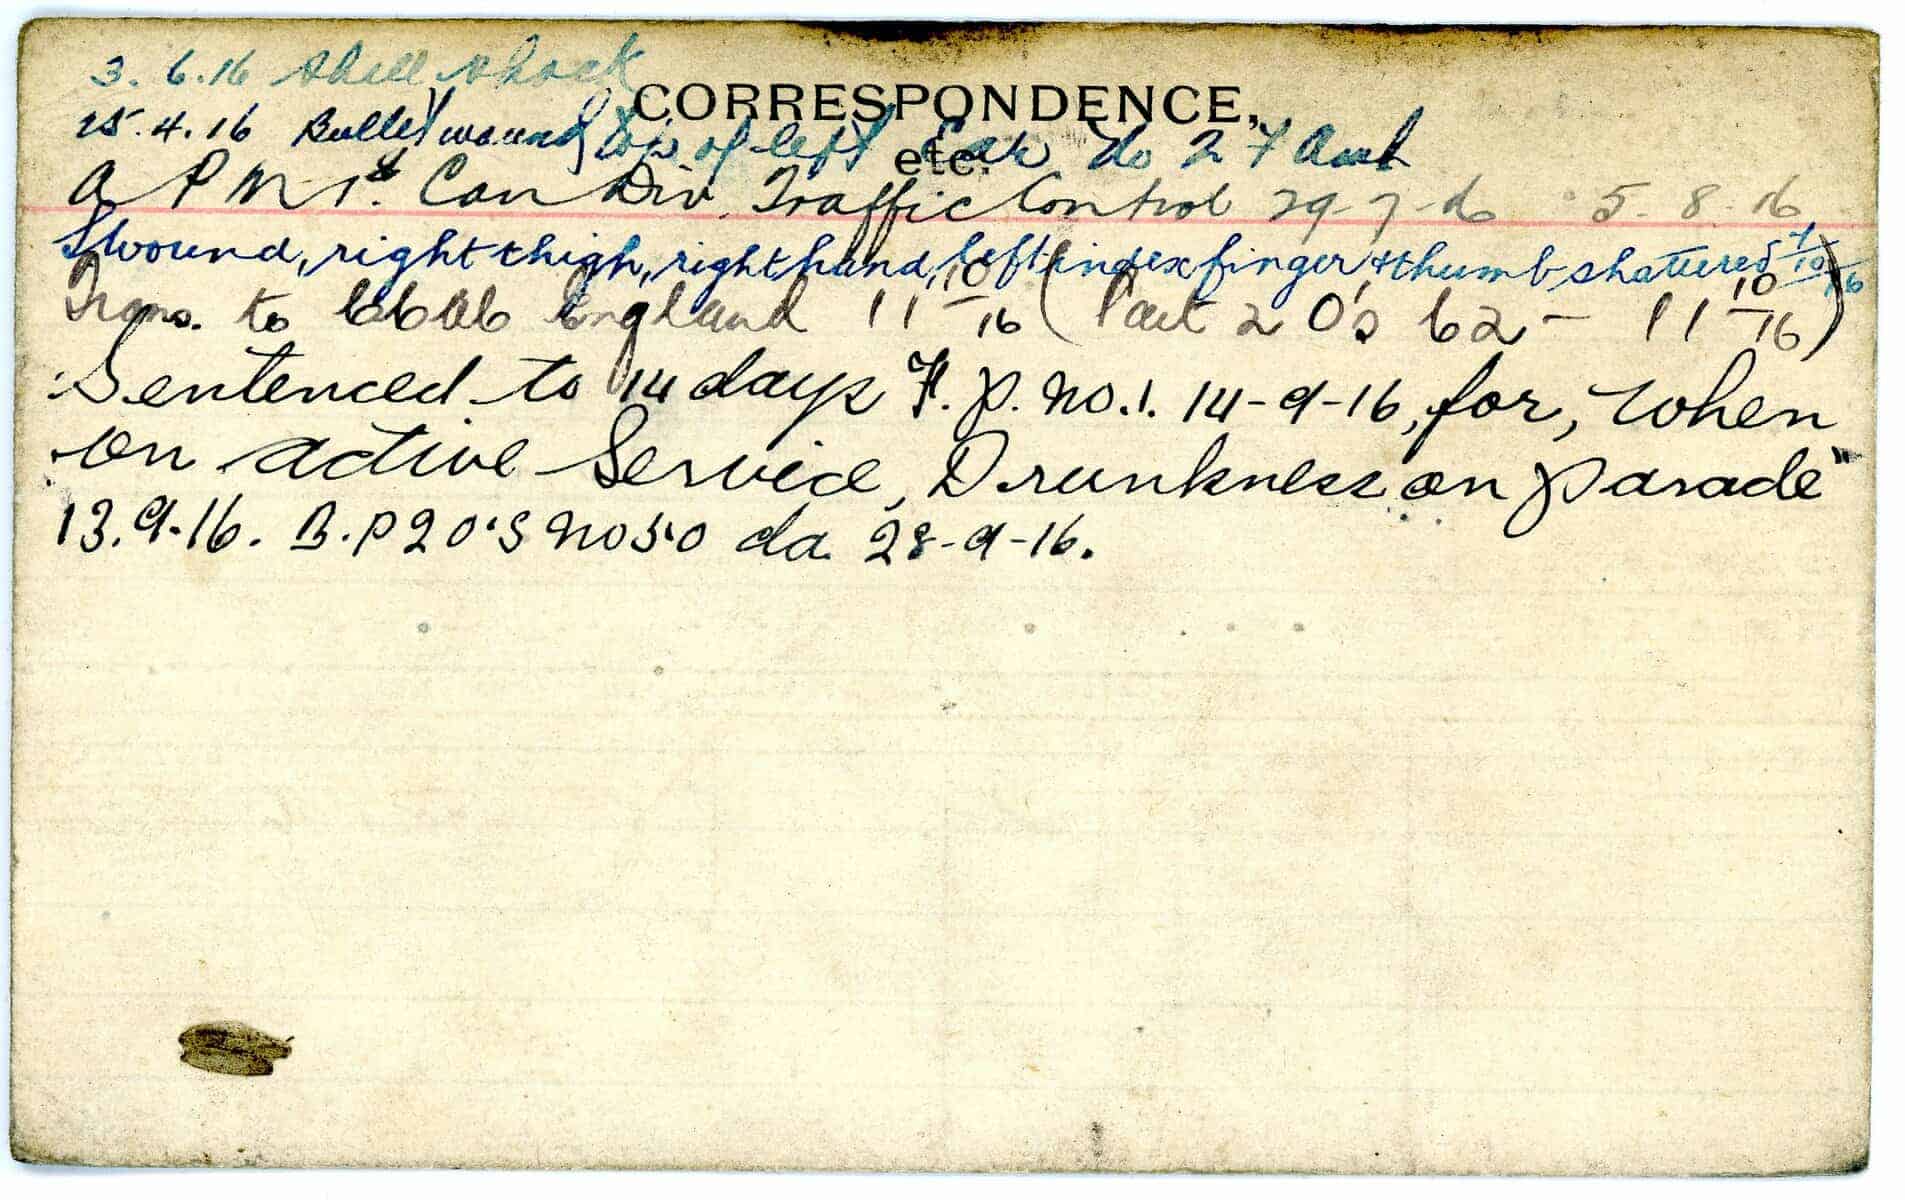 3. 6.16 Shell shock
CORRESPONDENCE,
etc.
25.4.16 Bullet wound top of left Ear to 2 F Amb
A P M 1st. Can Div. Traffic Control 29-7-16 5-8-16
S wound, right thigh, right hand, left index finger & thumb shattered 7/10/16
Trans. to England 11-10-16 (Part 2 O's 62 - 11-10-16)
Sentenced to 14 days F. P. No. 1. 14-9-16, for, "When
on active Service, Drunkness on parade"
13.9.16. B. P 2 O'S No 50 da 28-9-16.